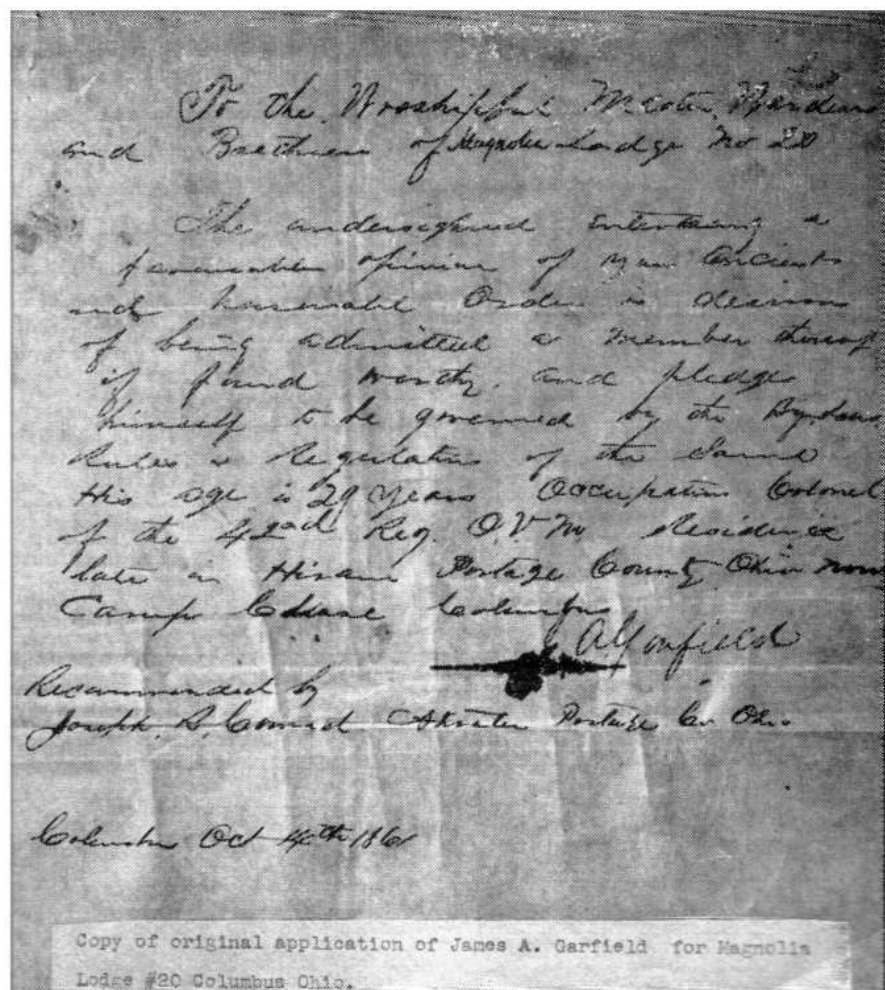 To the Worshipful Master, Wardens
and Brethren of Magnolia Lodge No 20
The undersigned entertaining a
favourable opinion of your Ancient
and honorable Order is desirous
of being admitted a member thereof
if found worthy, and pledge
himself to be governed by the By.Laws
Rules & Regulations of the Same
His age is 29 years Occupation Colonel
of the 42nd Reg. O.V.M. Residence
late in Hiram Portage County Ohio now
Camp Chase Columbus
J A Garfield
Recommended by
Joseph. B. Conrad Atwater Portage Co. Ohio
Columbus Oct 4th 1861
Copy of original application of James A. Garfield for Magnolia
Lodge #20 Columbus Ohio.